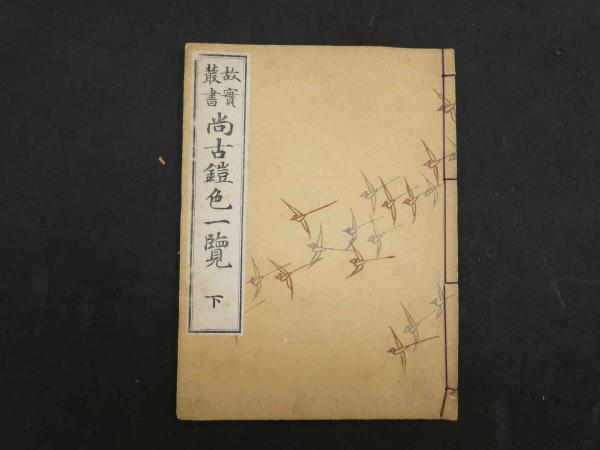 故實
叢書
尚古鎧色一覽
下